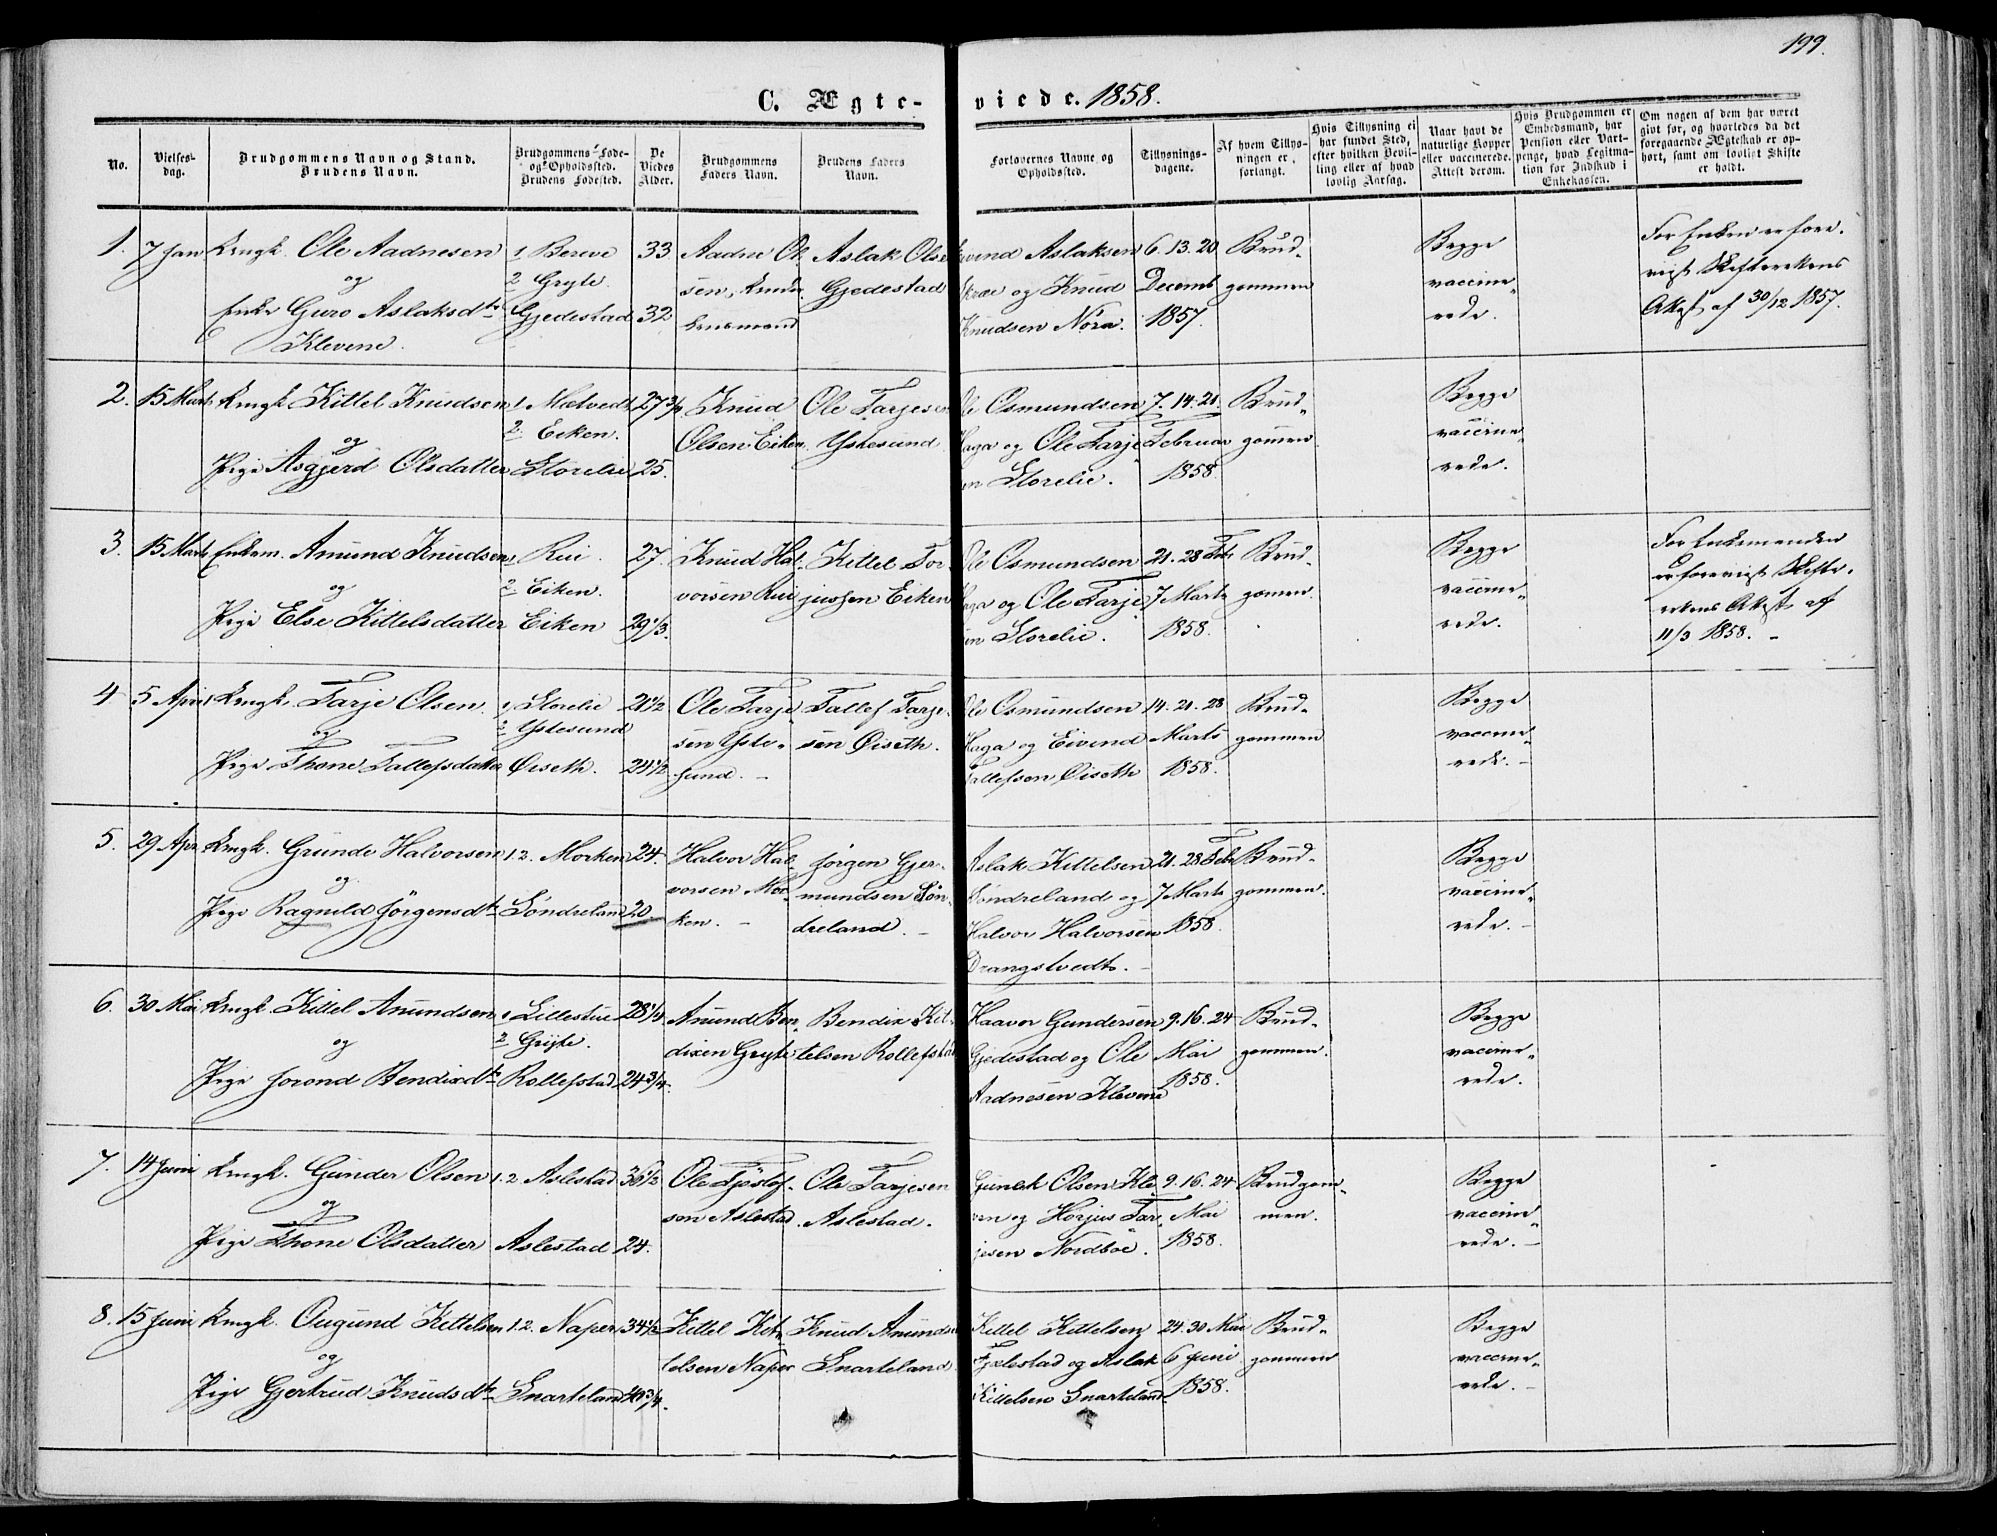 199.
C. Ægte-viede. 1858.
No.
Vielses-dag.
Brudgommens Navn og Stand.
Brudens Navn.
Brudgommens Føde-
og Opholdssted.
Brudens Fødested.
De
Viedes
Alder.
Brudgommens
Faders Navn.
Brudens Faders
Navn.
Forlovernes Navne og
Opholdssted.
Tillysnings-
dagene.
Af hvem Tillys-
ningen er
forlangt.
Hvis Tillysning ei
har fundet Sted,
efter hvilken Bevil-
ling eller af hvad
lovlig Aarsag.
Naar havt de
naturlige Kopper
eller vaccinerede.
Attest derom.
Hvis Brudgommen er
Embedsmand, har
Pension eller Vart-
penge, hvad Legitima-
tion for Indskud i
Enkekassen.
Om nogen af dem har været
givt før, og hvorledes da det
foregaaende Ægteskab er op-
hørt, samt om lovligt Skifte
er holdt.
1. 7 Jan Ungk. Ole Aadnesen
og
Enke Guro Aslaksdtr
Klevene.
1 Bereve
2 Gryte.
Gjedestad
33
32
Aadne Ol-
sen,
Lensmand
Aslak Olse
Gjedestad
Eivend Aslaksen
og Knud
Knudsen Nora.
6. 13. 20
Decemb
1857.
Brud-
gommen
Begge
vaccine-
rede.
For Enken er fore-
vist Skifterettens
Attest af 30/12 1857.
2. 15 Marts Ungk. Kittel Knudsen
og
Pige Asgjerd Olsdatter
1. Mælvedt
2. Eiken.
Storelie
27 3/4
25.
Knud
Olsen Eiken
Ole Tarjes
Ystesund
Ole Osmundsen
Haga og Ole Tarje
en Storelie.
7. 14. 21.
Februar
1858.
Brud-
gomen
Begge
vaccine-
rede.
3. 15 Marts Enkem. Anund Knudsen
og
Pige Else Kittelsdatter
1 Rui
2. Eiken.
Eiken
27.
29 1/3.
Knud Hal-
vorsen Rui
Kittel Tor-
jussen Eiken
Ole Osmundsen
Haga og Ole Tarje
en Storelie.
21. 28 Feb
7 Marts
1858.
Brud-
gomen.
Begge
vaccine-
rede.
For Enkemanden
er forevist Skifte-
rettens Attest af
11/3 1858. -
4 5 April Ungk. Tarje Olsen
og
Pige Thone Tallefsdatter
1, Storelie
2 Ystesund
Øiseth.
21 1/2
24 1/2
Ole Tarje-
sen Yste-
sund. -
Tallef Tarje-
sen Øiseth.
Ole Osmundsen
Haga og Eivend
Tallefsen Øiseth
14. 21. 28
Marts
1858.
Brud-
gommen
Begge
vaccine-
rede. -
5. 29 Apr. Ungk. Gunde Halvorsen
og
Pige Ragnild Jørgensdtr
1. 2. Morken
Søndreland
24.
20
Halvor Hal-
vorsen Mor-
ken. -
Jørgen Gjer-
mundsen Søn-
dreland. -
Aslak Kittelsen
Søndreland og
Halvor Halvorsen
Drangstvedt. -
21. 28 Feb
7 Marts
1858.
Brud-
gommen.
Begge
vaccine-
rede. -
6. 30 Mai Ungk. Kittel Anundsen
og
Pige Jorond Bendixdtr
1 Lillestue
2 Gryte.
Rollefstad
28 1/4
24 3/4.
Anund Ben-
dixen Gryte
Bendix Kit-
telsen Rollefstad
Haavor Gundersen
Gjedestad og Ole
Aadnesen Klevene
9. 16. 24
Mai
1858.
Brud-
gommen.
Begge
vaccine-
rede.
7. 14 Juni Ungk. Gunder Olsen
og
Pige Thone Olsdatter
1. 2 Aslestad
Aslestad
36 1/2
24.
Ole Tjostof-
sen Aslestad.
Ole Tarjesen
Aslestad.
Gunlek Olsen Kle
ven og Horjus Tar-
jesen Nordboe.
9. 16. 24
Mai
1858.
Brudgom-
men.
Begge
vaccine-
rede. -
8. 15 Juni Ungk. Ougund Kittelsen
og
Pige Gjertrud Knudsdtr
1. 2. Naper
Snarteland
34 1/2
40 3/4.
Kittel Kit-
telsen Naper
Knud Anunds
Snarteland
Kittel Kittelsen
Fjælestad og Aslak
Kittelsen Snarteland.
24. 30 Mai
6 Juni
1858.
Brud-
gommen
Begge
vaccine-
rede. -